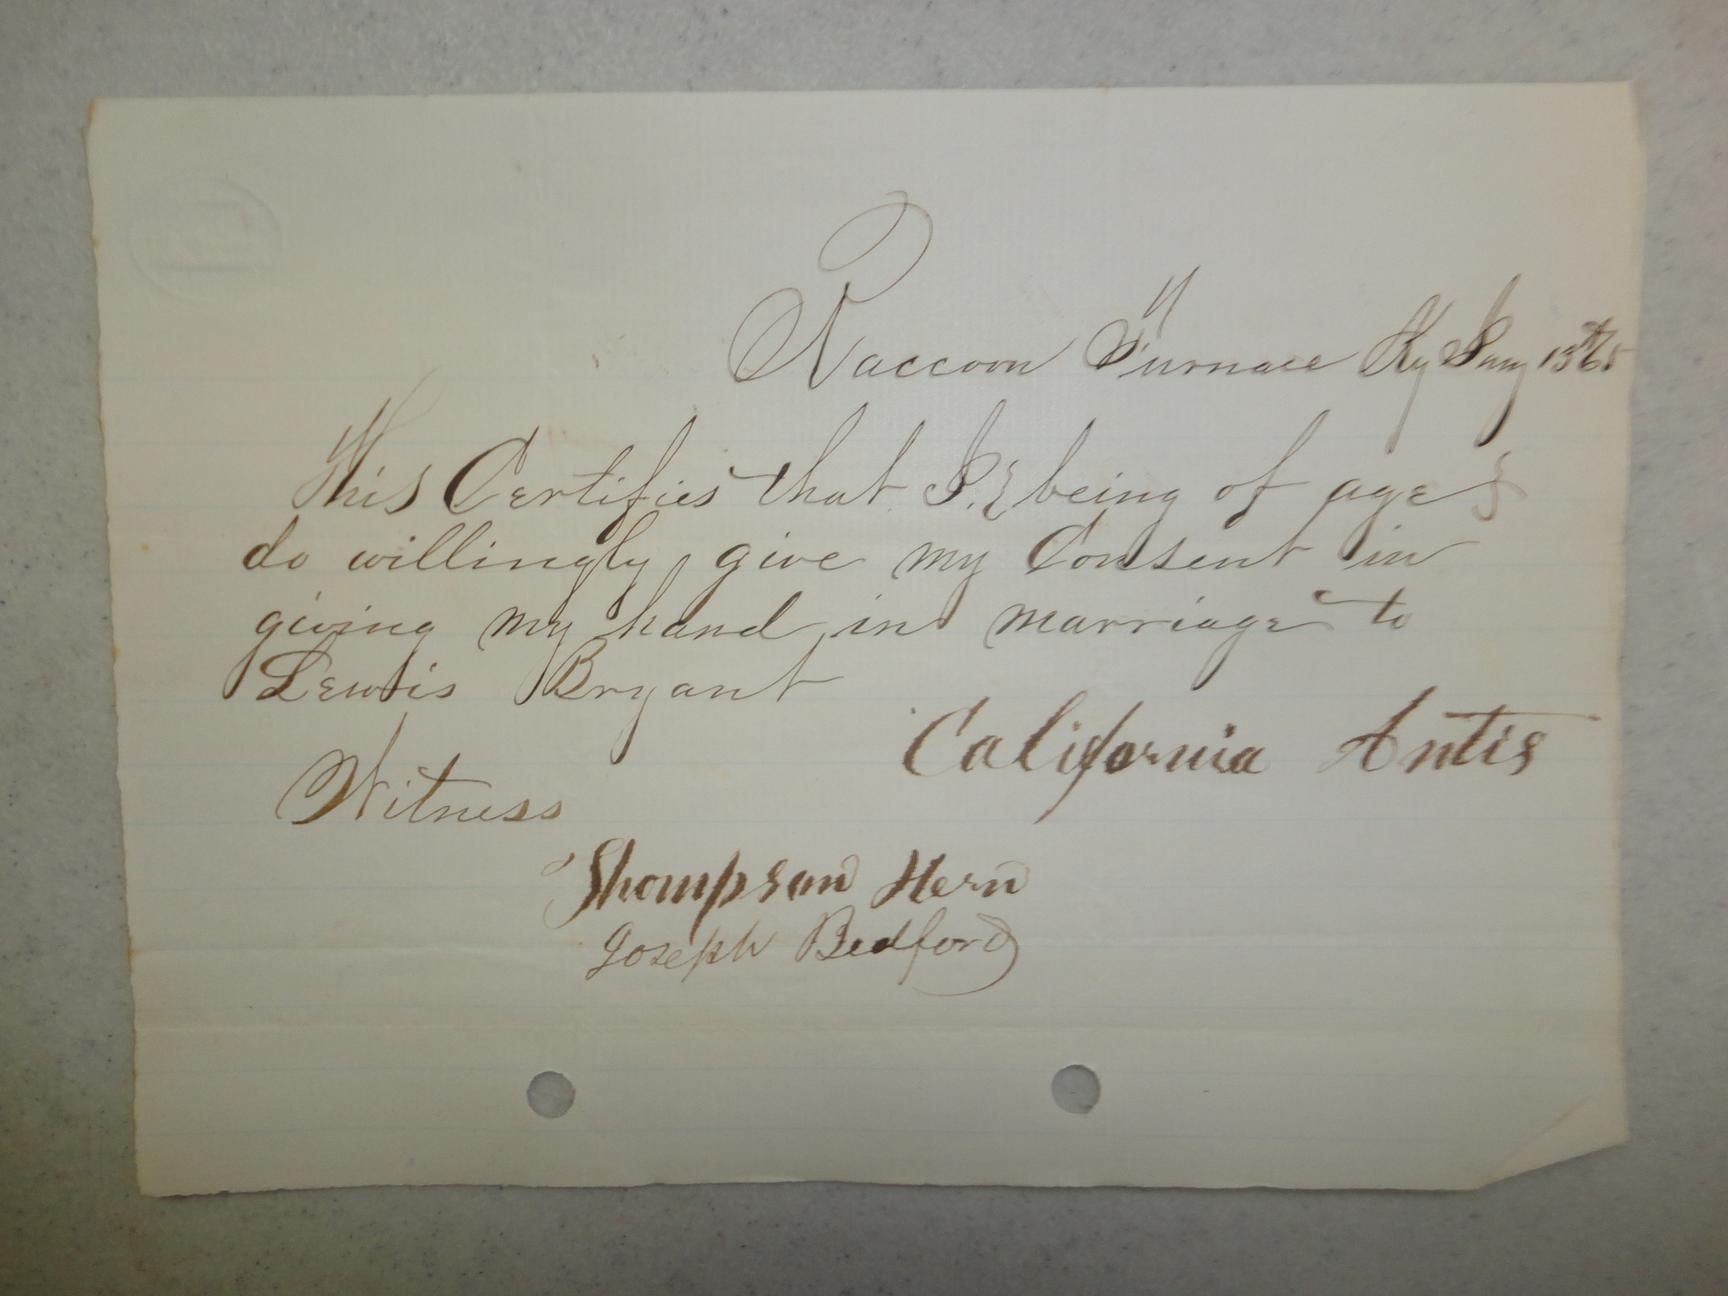 Raccoon Furnace Ky Jany 13th 65
This Certifies that I. { being of age }
do willingly give my Consent in
giving my hand in marriage to
Lewis Bryant
California Antis
Witness
Thompson Hern
Joseph Bedford